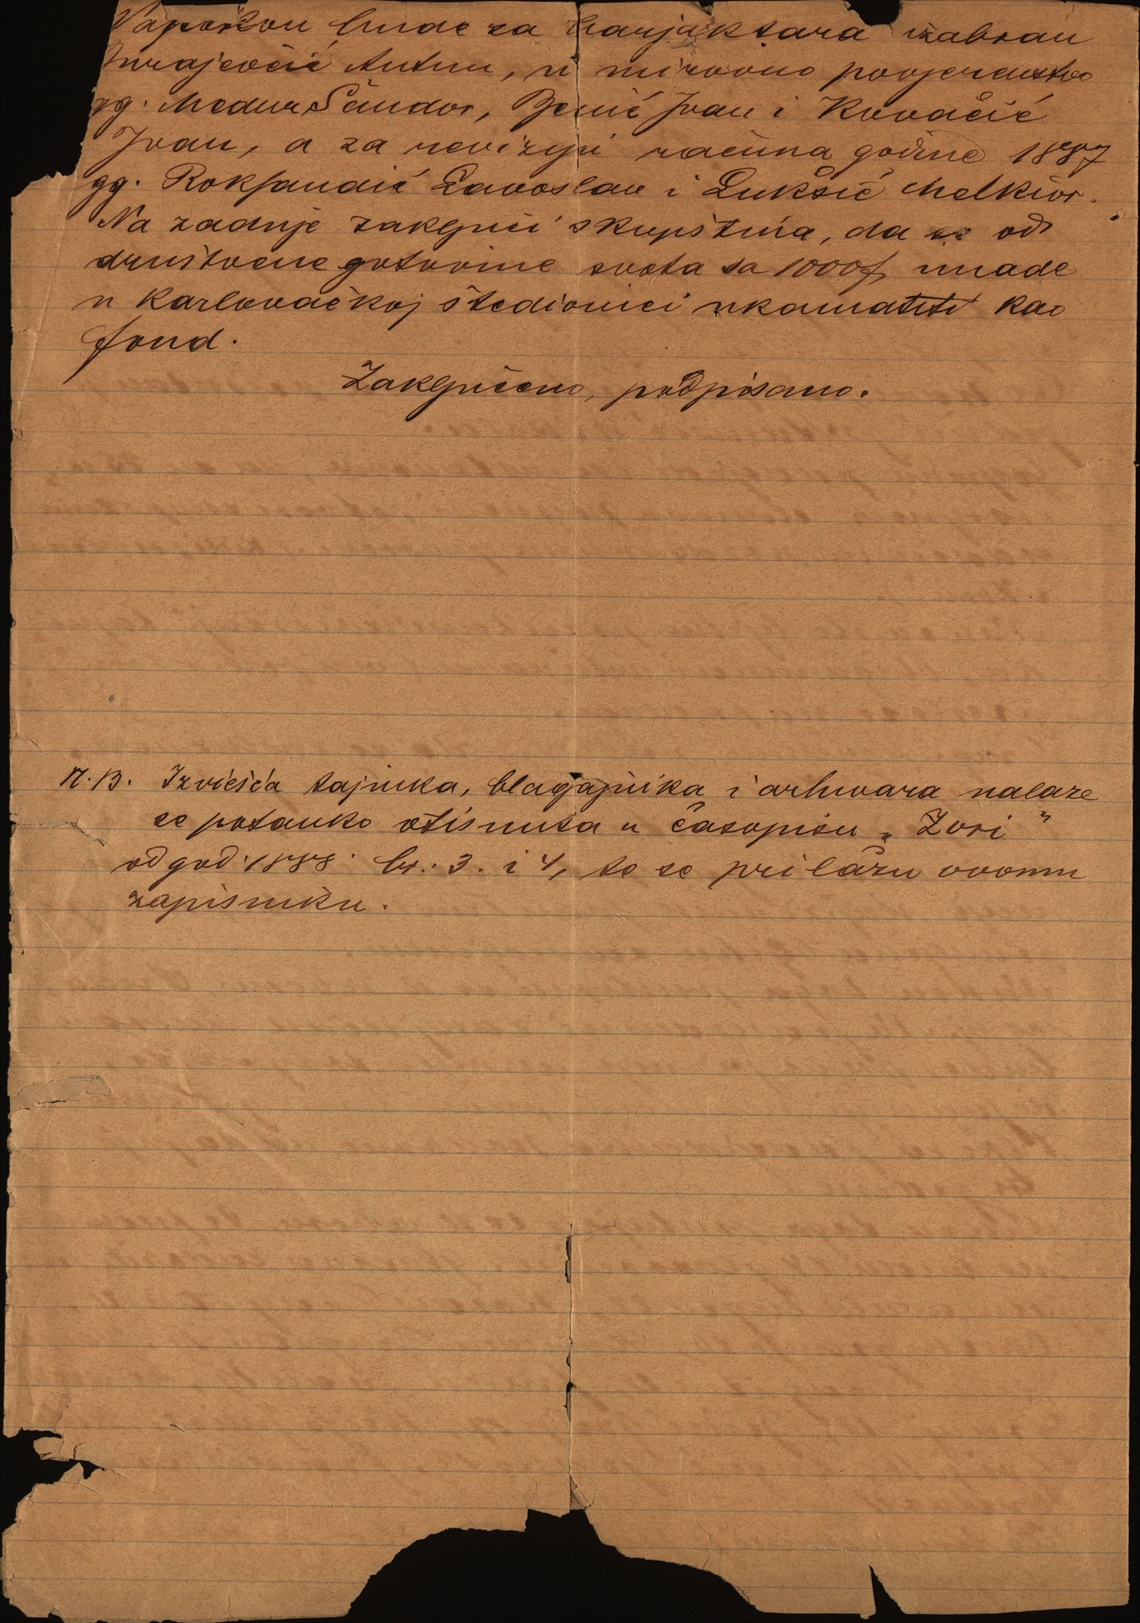 Napokon bude za barjaktara izabran
Antun, u mirovno povjerenstvo
gg. Medur Šandor, Benić Ivan i Kovačić
Ivan, a za reviziju računa godine 1887
gg. Roksandić Lavoslav i Lukšić Melkior.
Na zadnje zaključi skupština, da se od
društvene gotovine svota sa 1000 f. imade
u Karlovačkoj štedionici ukamatiti kao
fond.
Zaključeno, podpisano.
N.B. Izviešća tajnika, blagajnika i arhivara nalaze
se potanko otisnuta u časopisu „Zori"
od god. 1888 br. 3. i 4, te se prilažu ovomu
zapisniku.